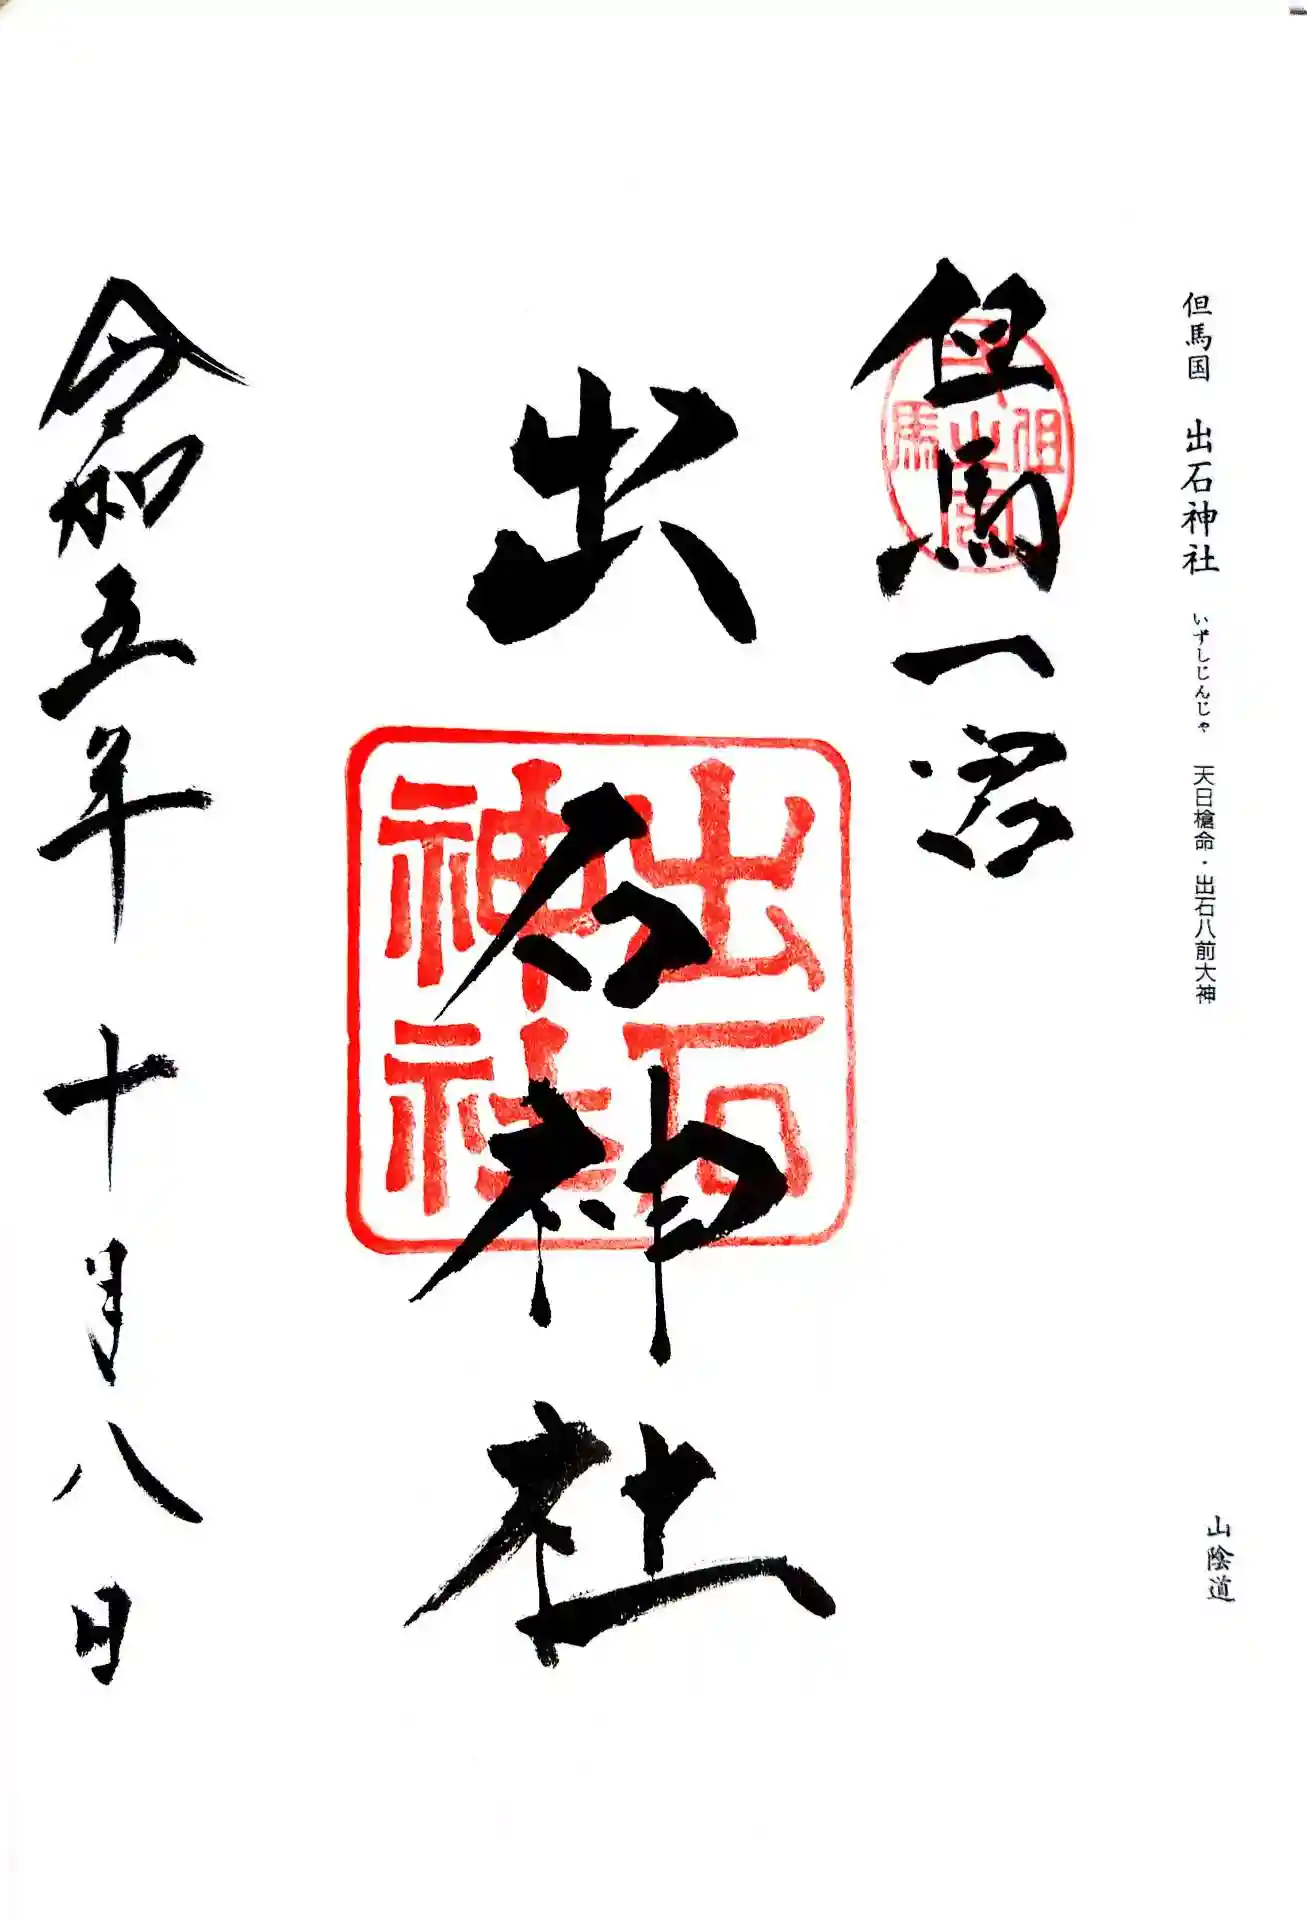 但馬国 出石神社 いずしじんじゃ 天日槍命・出石八前大神
山陰道
但馬一宮
出石神社
令和五年十月八日
出石神社